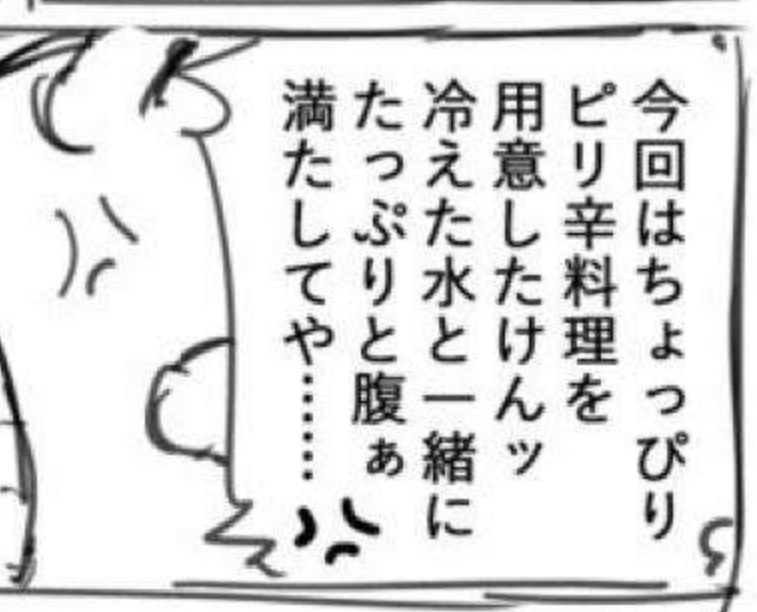 今回はちょっぴり
ピリ辛料理を
用意したけんッ
冷えた水と一緒に
たっぷりと腹ぁ
満たしてや……